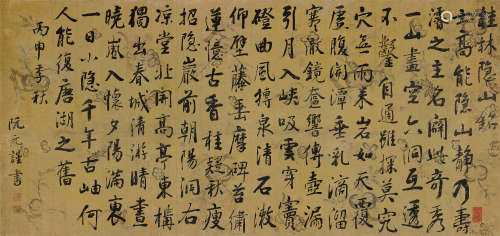 桂林隱山銘
士高能隱山靜乃壽
潘之主名闢此奇秀
一山盡空六洞互透
不鑿自通雖探莫究
穴無雨来岩如天覆
虛腹開潭垂乳滴溜
穹澈鏡奩響傳壺漏
引月入峽吸雲穿竇
磴曲風摶泉清石漱
仰壁藤垂磨碑苔繡
蓮隱古香桂遲秋瘦
招隱巖前朝陽洞右
涼堂北開高亭東構
獨出春城清游晴晝
曉嵐入懷夕陽滿裏
一日小隱千年古岫何
人能復唐湖之舊
丙申季秋 阮元謹書